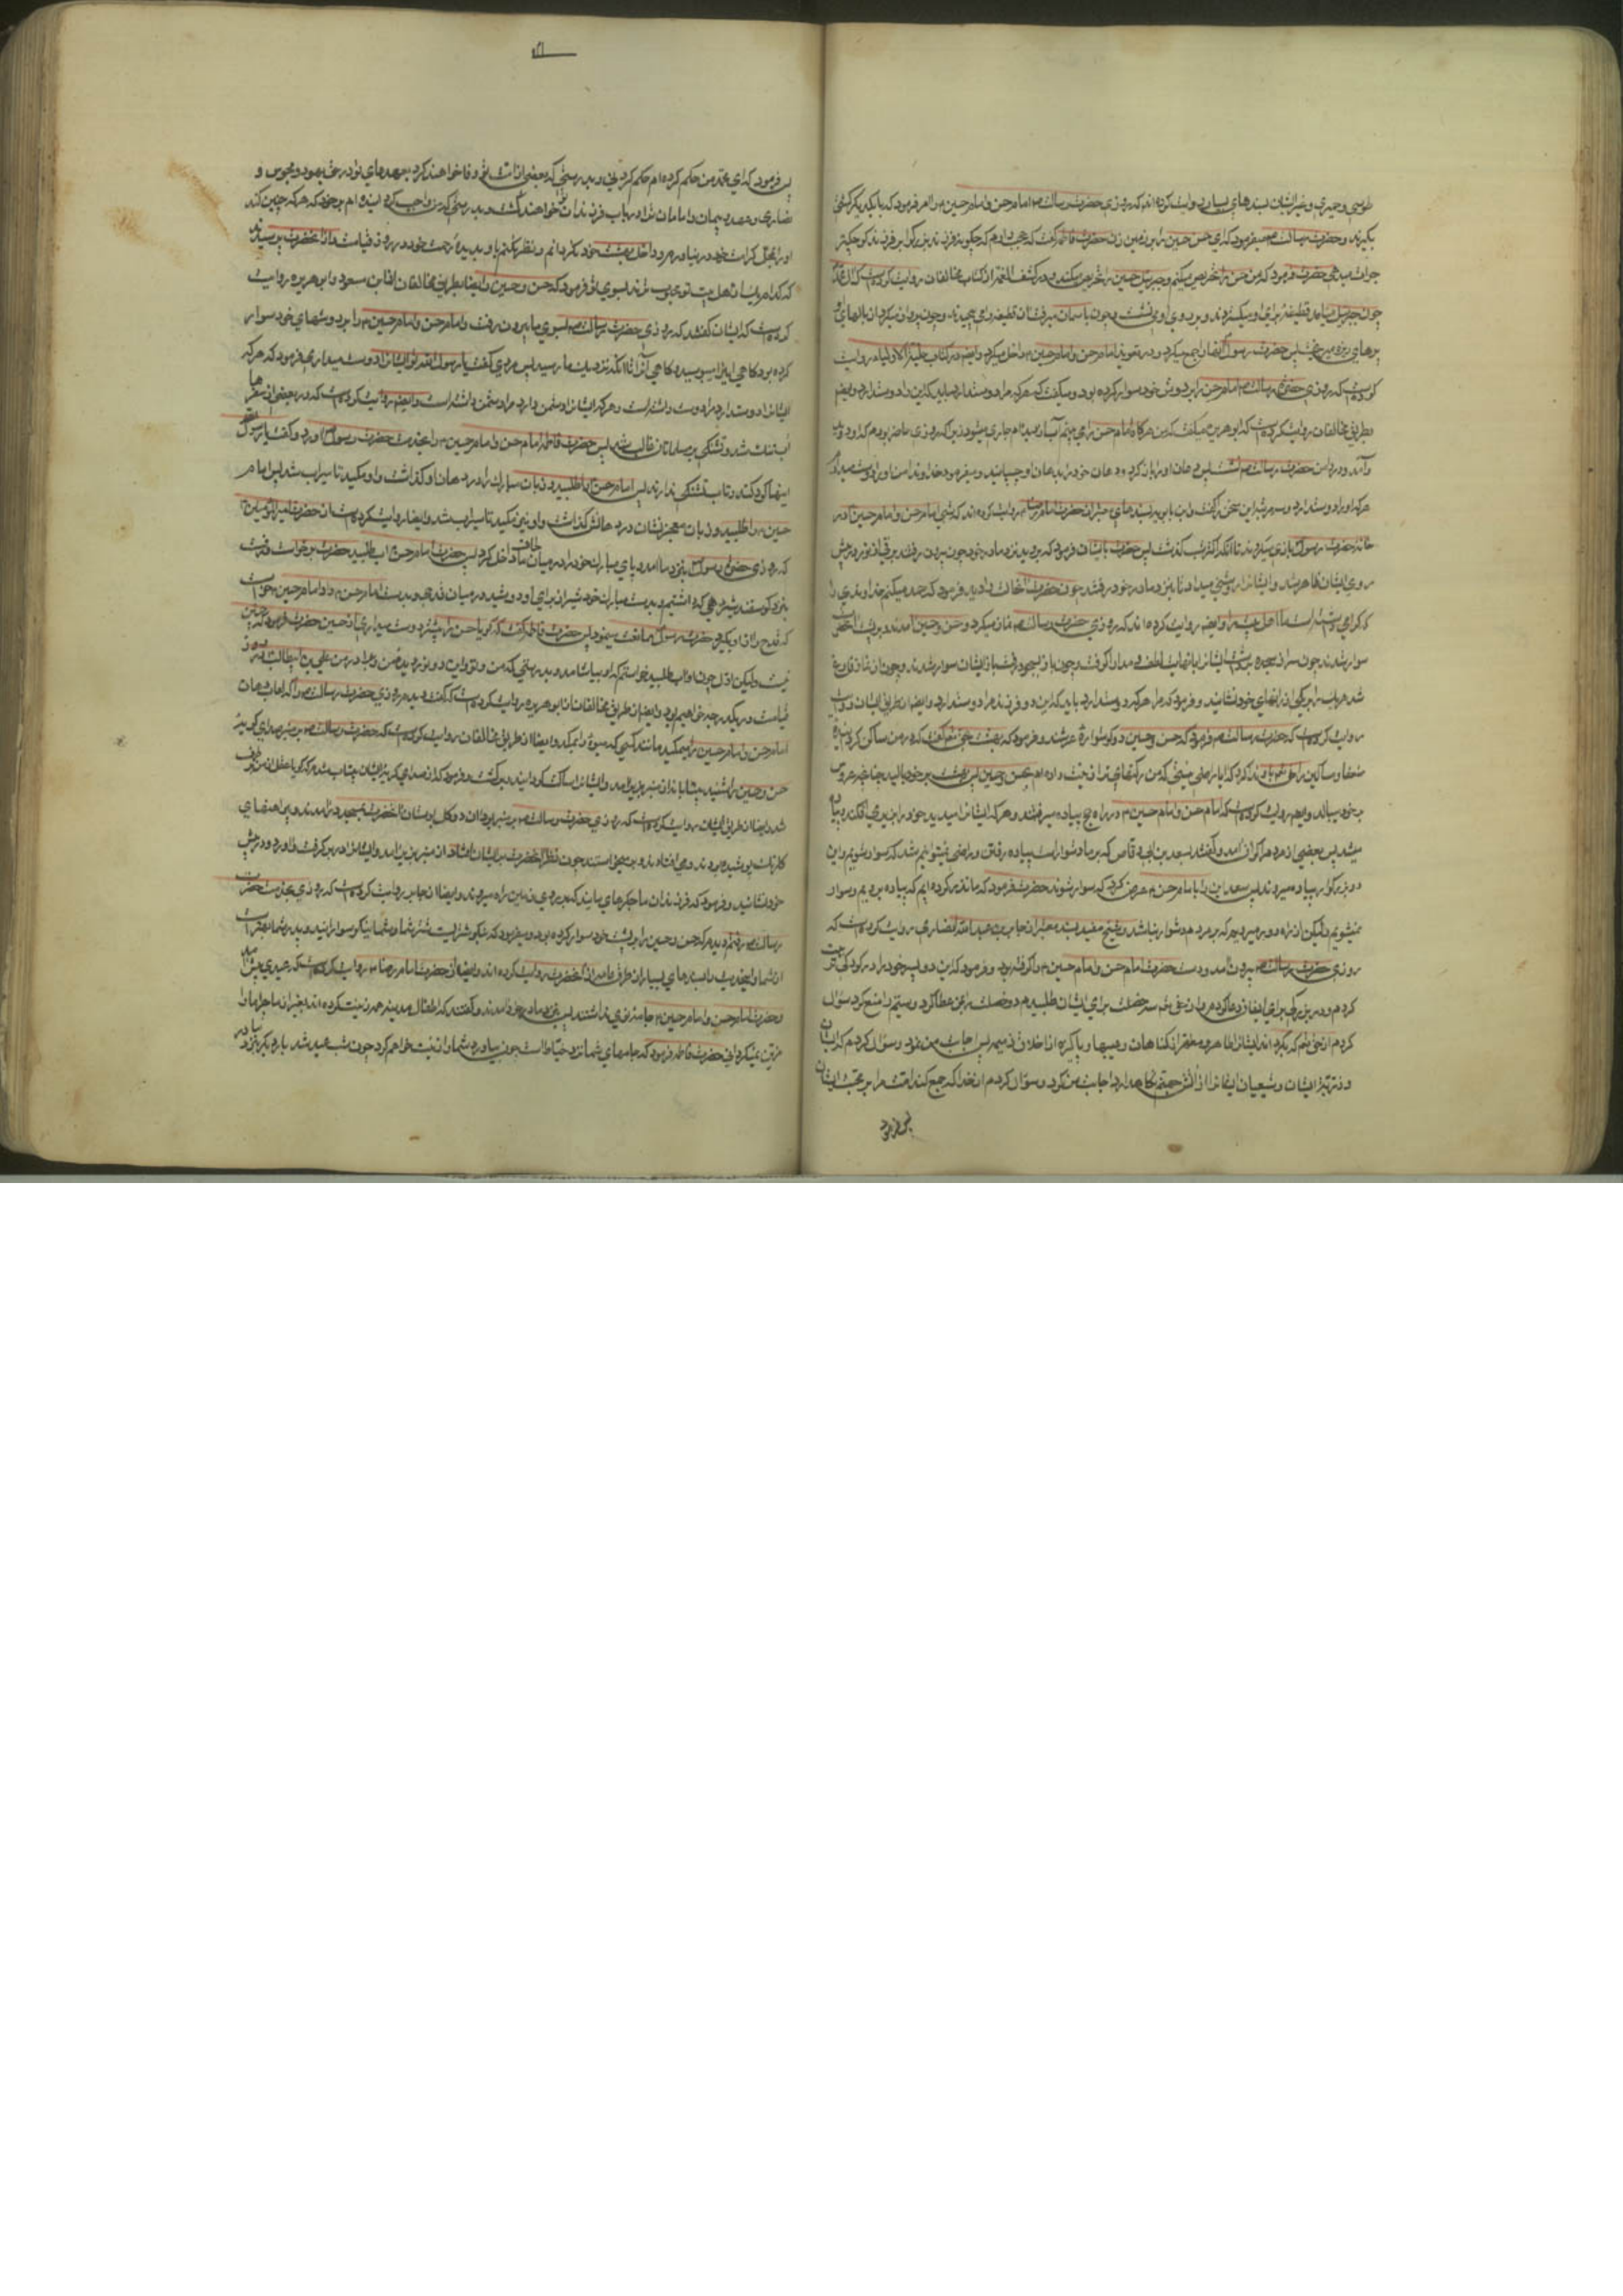 طوسی و حمیری و غیر ایشان بسندهای بسیار روایت کرده اند که روزی حضرت رسالت ص امام حسن و امام حسین را امر فرمود که با یکدیگر کشتی
بگیرند و حضرت رسالت ص میفرمود که ای حسن حسین را بر زمین زن حضرت فاطمه گفت که عجب دارم که چگونه فرزند بزرگوار بر فرزند کوچکتر
جرات میدهی حضرت فرمود که من حسن را تحریص میکنم و جبرئیل حسین را تحریص میکند و در کشف الغمه از کتاب مخالفان روایت کرده است که
چون جبرئیل میامد قطیفه برای او میگستردند و بر روی او می نشست و چون باسمان میرفت آن قطیفه را می پیچیدند و چون پرواز میکرد از بالهای او
پرهای ریزه میریخت پس حضرت رسول ص آنها را جمع میکرد و در تعویذ امام حسن و امام حسین داخل میکرد و ایضا در کتاب حلیة الاولیاء روایت
کرده است که روزی حضرت رسالت ص امام حسن را بر دوش خود سوار کرده بود و میگفت که هر که مرا دوست دارد میباید که این را دوست دارد و ایضا
بطریق مخالفان روایت کرده است که ابو هریره میگفت که من هرگاه امام حسن را می بینم آب از دیده ام جاری میشود زیرا که روزی حاضر بودم که او دوید
و آمد و در دامن حضرت رسالت ص نشست پس دهان او را باز کرد و دهان خود را بدهان او چسپانید و میفرمود خداوندا من او را دوست میدارم
هر که او را دوست دارد و سه مرتبه این سخن را گفت و ابن بابویه بسندهای معتبر از حضرت امام رضا روایت کرده اند که شبی امام حسن و امام حسین در
خانه حضرت رسول ص بازی میکردند تا آنکه اکثر شب گذشت پس حضرت بایشان فرمود که بروید بنزد مادر خود چون بیرون رفتند برقی از نور در پیش
روی ایشان ظاهر شد و ایشان را روشنی میداد تا بنزد مادر خود رفتند چون حضرت آنحالت را دید فرمود که حمد میکنم خداوندی را
که گرامی داشته است ما اهل بیت را و ایضا روایت کرده اند که روزی حضرت رسالت ص نماز میکرد و حسن و حسین آمدند و بر پشت آنحضرت
سوار شدند چون سر از سجده برداشت ایشان را بنهایت لطف و مدارا گرفت و چون باز بسجود رفت باز ایشان سوار شدند و چون از نماز فارغ
شد هر یک را بر یکی از رانهای خود نشانید و فرمود که هر که مرا دوست دارد باید که این دو فرزند مرا دوست دارد و ایضا از طریق ایشان
روایت کرده است که حضرت رسالت ص فرمود که حسن و حسین دو گوشواره عرشند و فرمود که بهشت با حق تعالی گفت که در من ساکن کردی
ضعفا و مساکین را حق تعالی باو ندا کرد که ایا راضی نیستی که من رکنهای ترا زینت داده ام بحسن و حسین پس بهشت بر خود بالید چنانچه عروس
بر خود میبالد و ایضا روایت کرده است که امام حسن و امام حسین در راه حج پیاده میرفتند و هر که ایشان را میدید خود را بزیر می افکند و پیاده
میشد پس بعضی از مردم را گران آمد و گفتند بسعد بن ابی وقاص که بر ما دشوار است پیاده رفتن و راضی نمیشویم که سوار شویم و این
دو بزرگوار پیاده میروند پس سعد این را بامام حسن عرض کرد که سوار شوند حضرت فرمود که ما نذر کرده ایم که پیاده برویم و سوار
نمیشویم ولیکن از راه دور میرویم که بر مردم دشوار نباشد و شیخ مفید بسند معتبر از جابر بن عبد الله انصاری روایت کرده است که
روزی حضرت رسالت ص بیرون آمد و دست حضرت امام حسن و امام حسین را گرفته بود و فرمود که این دو پسر خود را در کودکی تربیت
کردم و در بزرگی برای ایشان دعا کردم و از حق تعالی سه خصلت برای ایشان طلبیدم دو خصلت را بمن عطا کرد و سیم را منع کرد سؤال
کردم از حق تعالی که بگرداند ایشان را طاهر و مطهر از گناهان و عیبها و پاکیزه از اخلاق ذمیمه پس اجابت من نمود و سؤال کردم که ایشان
و ذریه ایشان و شیعیان ایشان را از آتش جهنم نگاهدارد اجابت من کرد و سؤال کردم از خدا که جمع کند امت مرا بر محبت ایشان
پس فرمود
پس فرمود که ای محمد من حکم کرده ام حکم کردنی و بدرستی که بعضی از امت تو وفا خواهند کرد بعهدهای تو در حق یهود و مجوس و
نصاری و عهد و پیمان و امان ترا در باب فرزندان تو خواهند شکست و بدرستی که من واجب گردانیده ام بر خود که هر که چنین کند
او را بمحل کرامت خود در نیاورم و داخل بهشت خود نگردانم و نظر نکنم باو بدیده رحمت خود در روز قیامت و از آنحضرت پرسیدند
که کدام یک از اهل بیت تو محبوب ترند بسوی تو فرمود که حسن و حسین و ایضا بطریق مخالفان از ابن مسعود و ابو هریره روایت
کرده است که ایشان گفتند که روزی حضرت رسالت ص بسوی ما بیرون رفت و امام حسن و امام حسین را بر دوشهای خود سوار
کرده بود گاهی این را میبوسید و گاهی آنرا تا آنکه نزدیک ما رسید پس مردی گفت یا رسول الله تو ایشان را دوست میداری فرمود که هر که
ایشان را دوست دارد مرا دوست داشته است و هر که ایشان را دشمن دارد مرا دشمن داشته است و ایضا روایت کرده است که در بعضی از سفرها
آب تنک شد و تشنکی بر مسلمانان غالب شد پس حضرت فاطمه امام حسن و امام حسین را بخدمت حضرت رسول ص آورد و گفت یا رسول الله
اینها کودکند و تاب تشنکی ندارند پس امام حسن را طلبید و زبان مبارک را در دهان او گذاشت و او مکید تا سیراب شد پس امام
حسین را طلبید و زبان معجز نشان در دهانش گذاشت و او نیز مکید تا سیراب شد و ایضا روایت کرده است از حضرت امیر المؤمنین
که روزی حضرت رسول ص بنزد ما آمد و پای مبارک خود را در میان لحاف ما داخل کرد پس حضرت امام حسن اب طلبید حضرت برخواست و رفت
بنزد گوسفند شیردهی که داشتیم و بدست مبارک خود شیر از برای او دوشید در میان قدحی و بدست امام حسن داد امام حسین خواست
که قدح را از او بگیرد حضرت رسول ص ممانعت مینمود پس حضرت فاطمه گفت که گویا حسن را بیشتر دوست میداری از حسین حضرت فرمود که چنین
نیست ولیکن اول چون او اب طلبید خواستم که او بیاشامد و بدرستی که من و تو و این دو نور دیده من و برادر من علی بن ابیطالب در روز
قیامت در یک درجه خواهیم بود و ایضا از طریق مخالفان از ابو هریره روایت کرده است که گفت دیدم روزی حضرت رسالت ص را که لعاب دهان
امام حسن و امام حسین را میمکید مانند کسی که میوه را بمکد و ایضا از طریق مخالفان روایت کرده است که حضرت رسالت ص بر منبر صدای گریه
حسن و حسین را شنید بیتابانه از منبر بزیر آمد و ایشان را ساکت گردانید و برگشت و فرمود که از صدای گریه ایشان چنان بیتاب شدم که گویا عقل از من برطرف
شد و ایضا از طریق ایشان روایت کرده است که روزی حضرت رسالت ص بر منبر بود آن دو گل بوستان آنحضرت بمسجد در آمدند و پیراهنهای
گلرنگ پوشیده بودند و می افتادند و بر میخواستند چون نظر آنحضرت بر ایشان افتاد از منبر بزیر آمد و ایشان را در بر گرفت و آورد و در پیش
خود نشانید و فرمود که فرزندان ما جگرهای مایند که بر روی زمین راه میروند و ایضا از جابر روایت کرده است که روزی بخدمت حضرت
رسالت ص رفتم دیدم که حسن و حسین را بر پشت خود سوار کرده بود و میفرمود که نیکو شتریست شتر شما و شما نیکو سوارانید و پدر شما بهتر است
از شما و این حدیث را بسندهای بسیار از طرق عامه از آنحضرت روایت کرده اند و ایضا از حضرت امام رضا روایت کرده است که عیدی پیش آمد
و حضرت امام حسن و امام حسین جامه نوی نداشتند پس بنزد مادر خود آمدند و گفتند که اطفال مدینه همه زینت کرده اند بغیر از ما چرا ما را
مزین نمیگردانی حضرت فاطمه فرمود که جامهای شما نزد خیاط است چون بیاورد شما را زینت خواهم کرد چون شب عید شد بار دیگر بنزد مادر